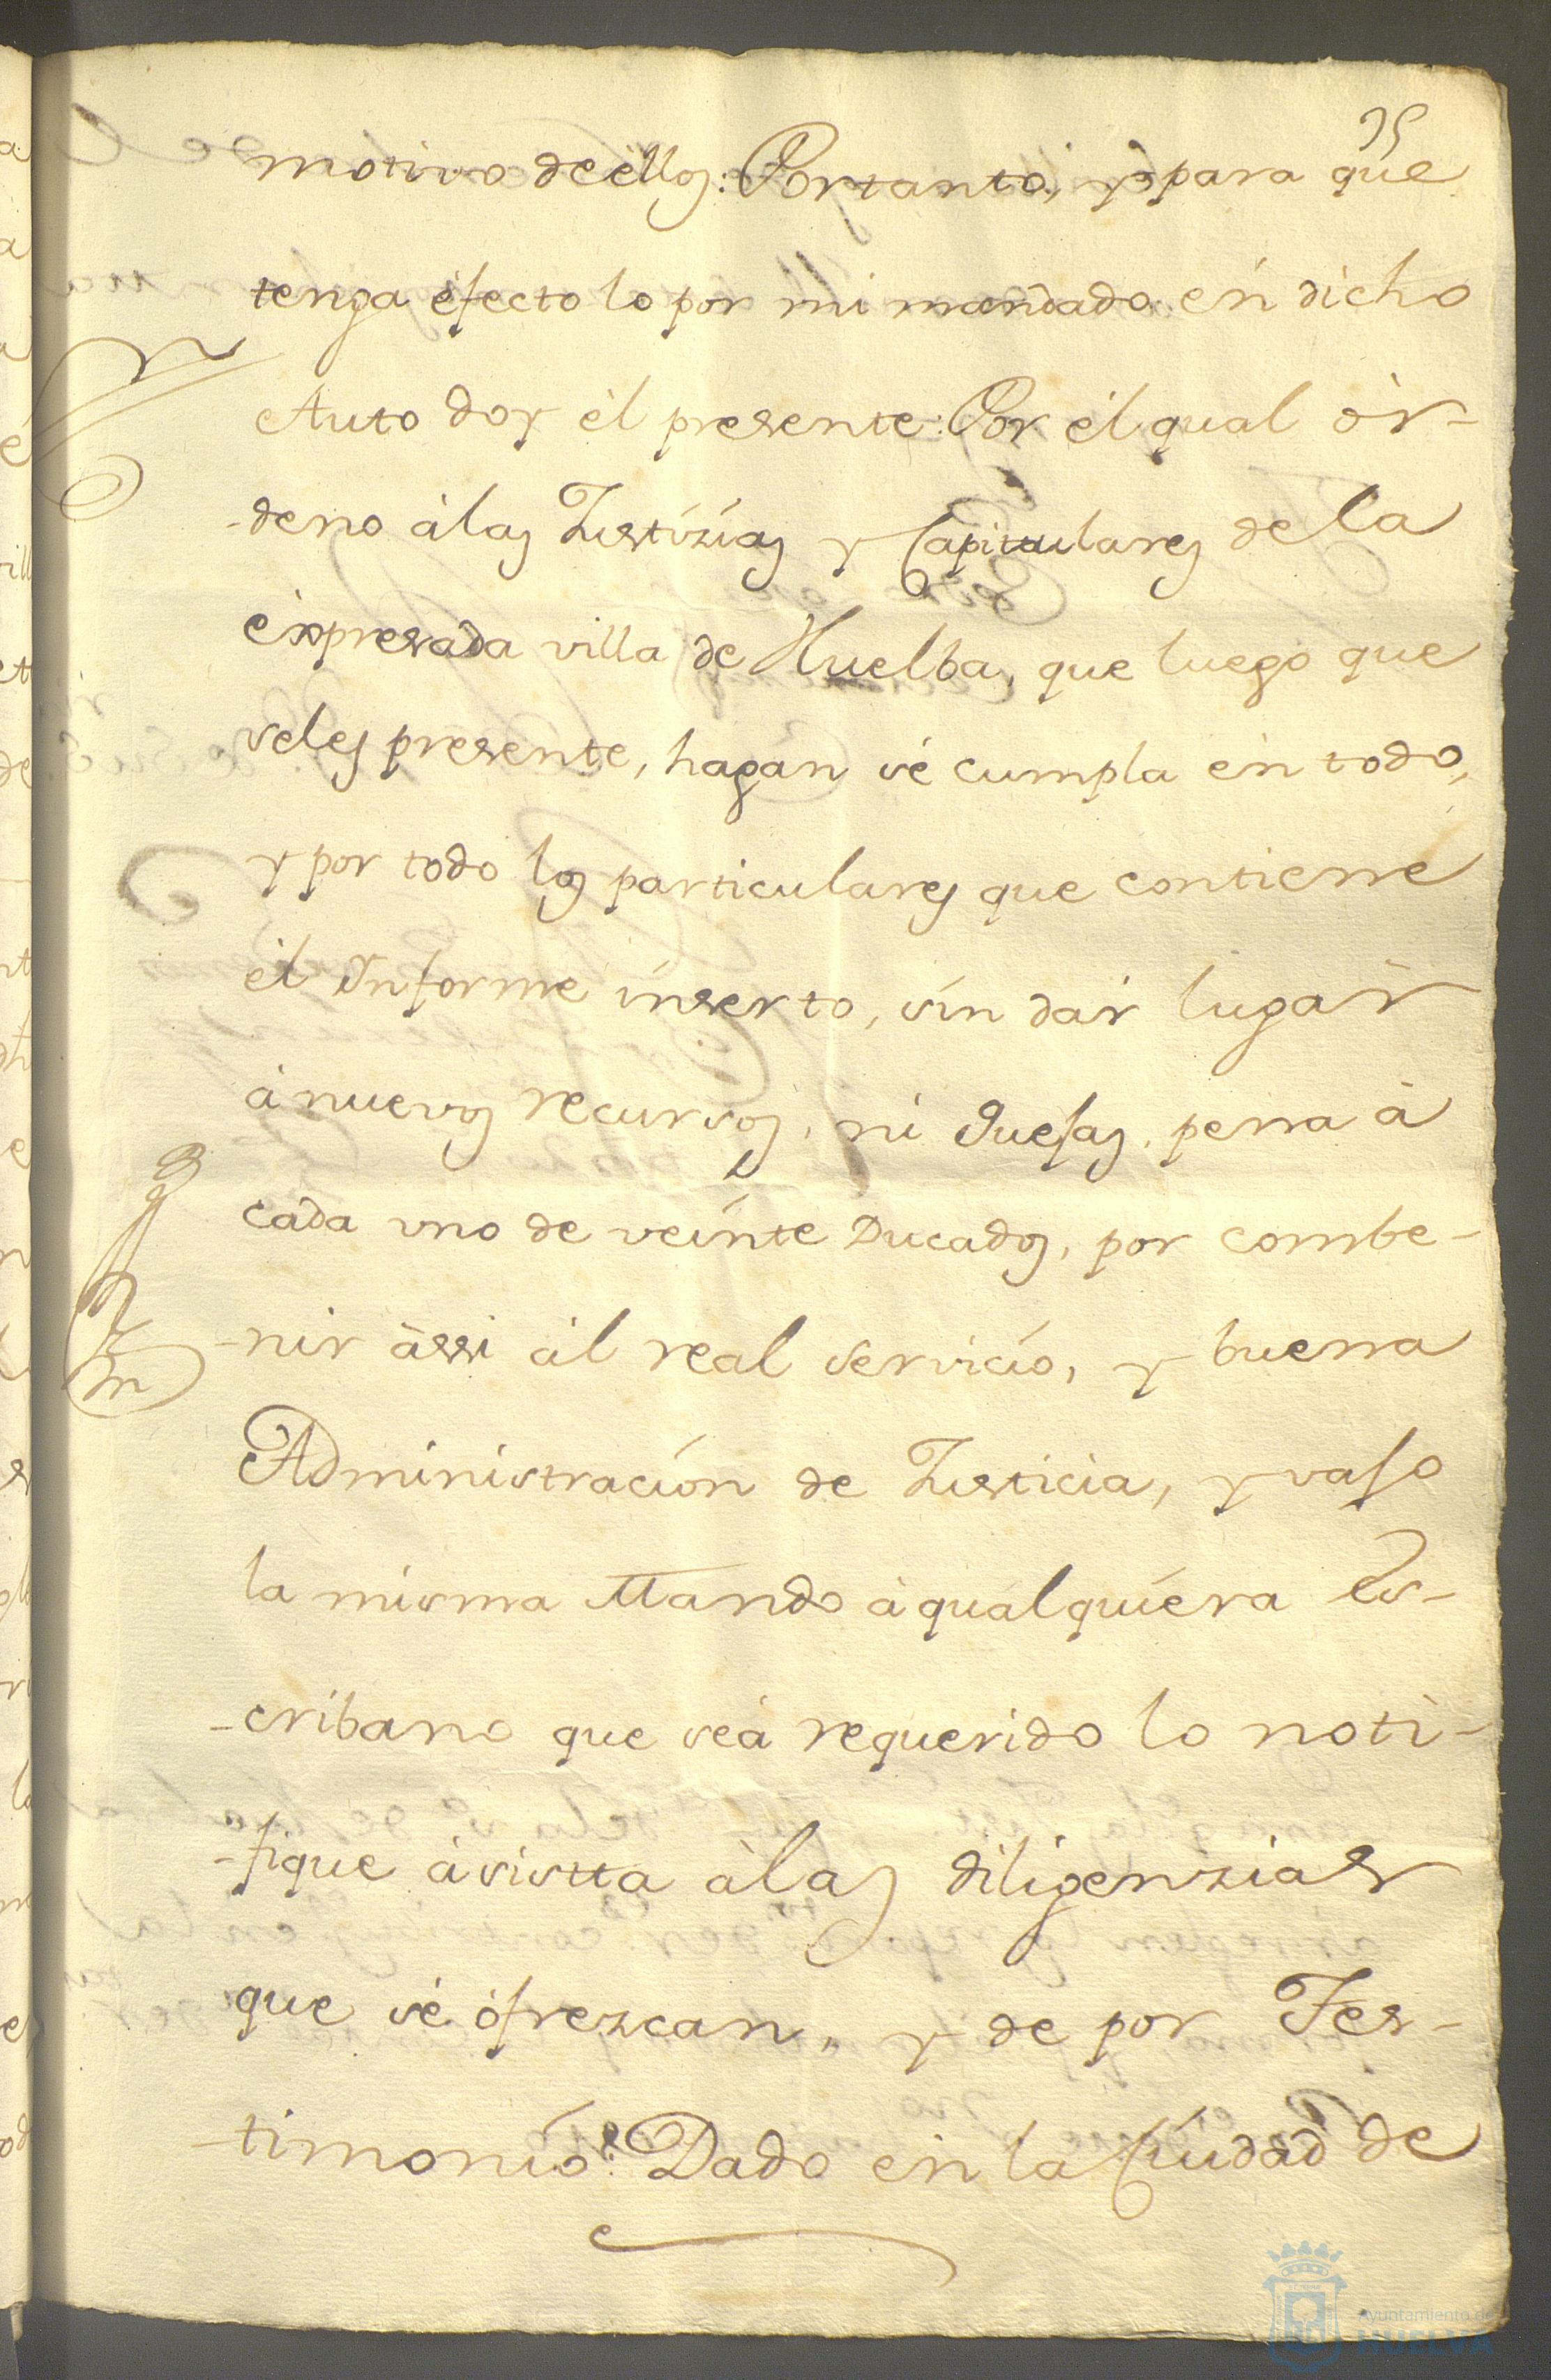 35
motivo deèllos: Portanto, y para que
tenga èfecto lo por mi mandado èn dicho
Auto doy èl presente: Por èl qual òr-
-deno àlas Justízías y Capitulares de la
èxpresada villa de Huelba, que luego que
seles presente, hagan sè cumpla èn todo,
y por todo los particulares que contiene
èl Informe ínserto, sín dar lugàr
à nuevos recursos, ni Quejas, pena à
cada vno de veínte Ducados, por combe-
-nir àssi àl real servicío, y buena
Administracíon de Justicia, y vajo
la mísma Mando àqualquíera Es-
-críbano que seà requerido lo noti-
-fique àsistta àlas diligenzias
que sè òfrezcan, y de por Tes-
-timonío: Dado èn la Cíudad de
Ayuntamiento de
HUELVA